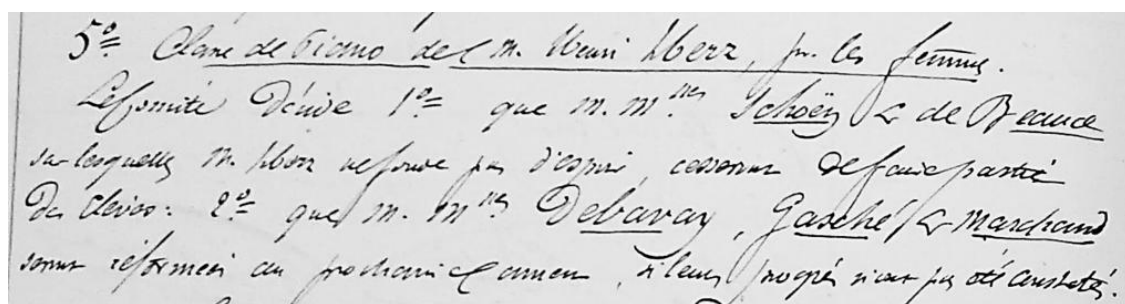 5º Classe de Piano de M. Henri Herz, pr. les femmes.
Le Comité Décide 1º que M. Mlles Schoëy & de Beauce
sur lesquelles M. Herz ne fonde pas d'espoir, cesseront de faire partie
des élèves: 2º que M. Mlles Debavay, Gasché & Marchand
seront réformées au prochain examen, si leurs progrès n'ont pas été constatés.